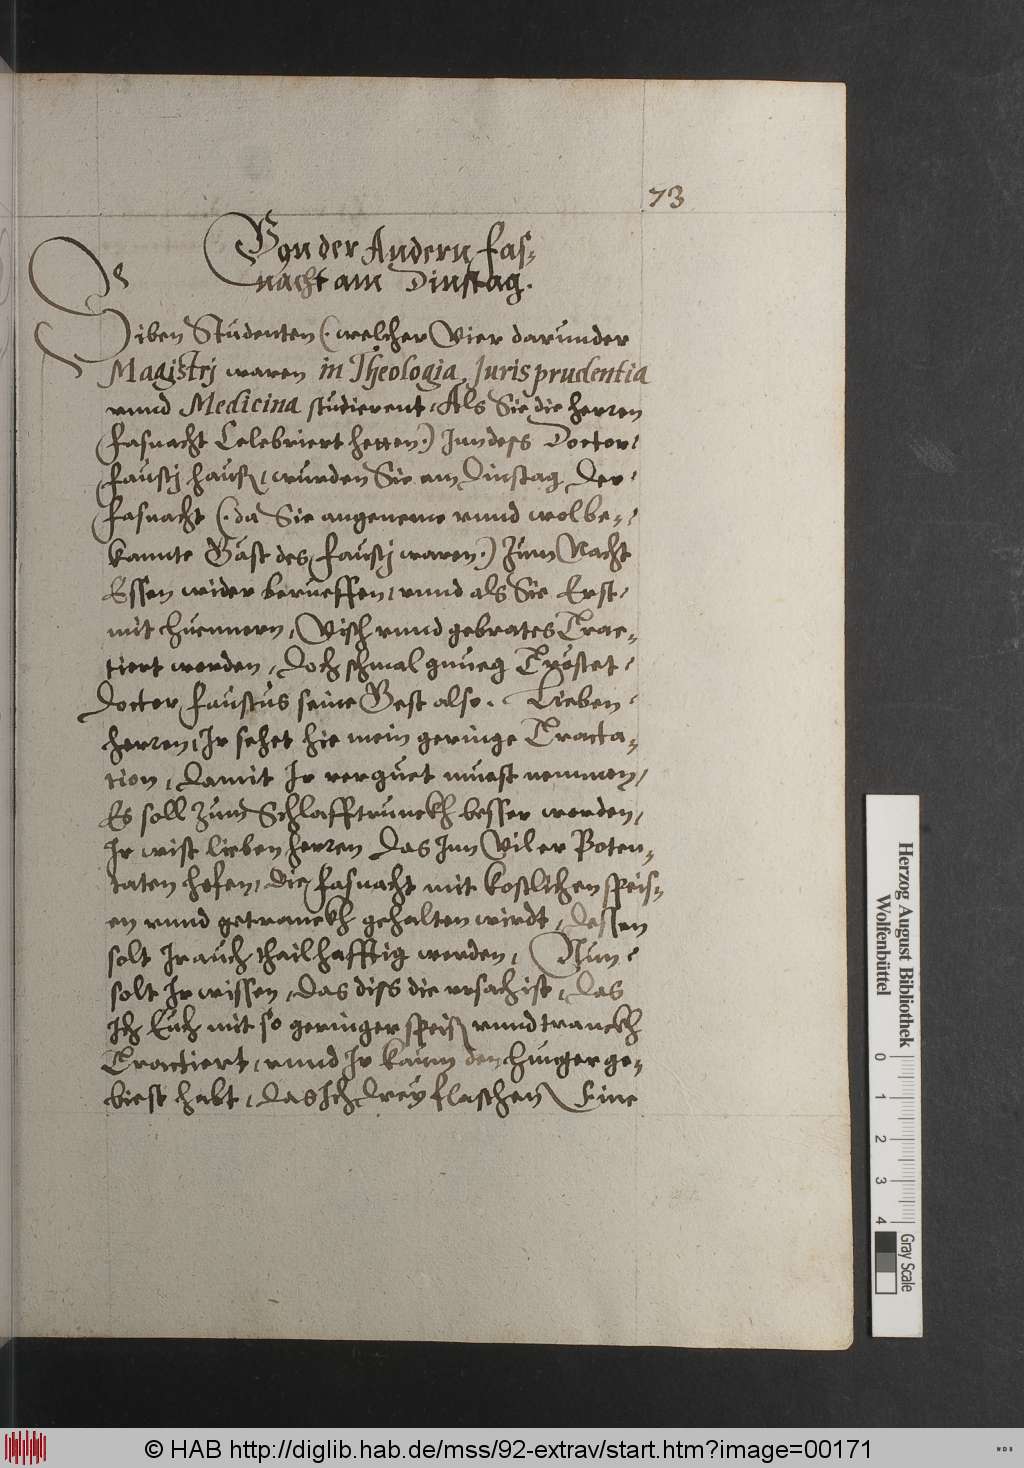 73
Von der Andern Fas-
nacht am Dinstag.
Siben Studenten (: welcher Vier darunder
Magistrj waren in Theologia, Jurisprudentia
vnnd Medicina studierent, Als Sie die herren
Fasnacht Celebriert hetten :) Inn dess Doctor
Faustj hauß, wurden Sie am Dinstag der
Fasnacht (: da Sie angeneme vnnd wolbe-
kannte Gäst des Faustj waren :) Zum Nacht
Essen wider berueffen, vnnd als Sie Erst-
mit huennern, Visch vnnd gebrates Trac-
tiert worden, doch schmal gnueg Tröstet
Doctor Faustus seine Gest also. Lieben
herren, Ir sehet hie mein geringe Tracta-
tion, damit Ir verguet muest nemmen,
Es soll zum Schlafftrunckh besser werden,
Ir wist lieben herren das Inn Viler Poten-
taten hofen, die Fasnacht mit kostlichen speis-
en vnnd getranckh gehalten wirdt, dessen
solt Ir auch thailhafftig werden, Nun
solt Ir wissen, das diss die vrsach ist, das
Ich Euch mit so geringer speiß vnnd tranckh
Tractiert, vnnd Ir kaum den hunger ge-
biest habt, das Ich drey flaschen Eine
Herzog August Bibliothek
Wolfenbüttel
0 1 2 3 4
Gray Scale
© HAB http://diglib.hab.de/mss/92-extrav/start.htm?image=00171
WDB